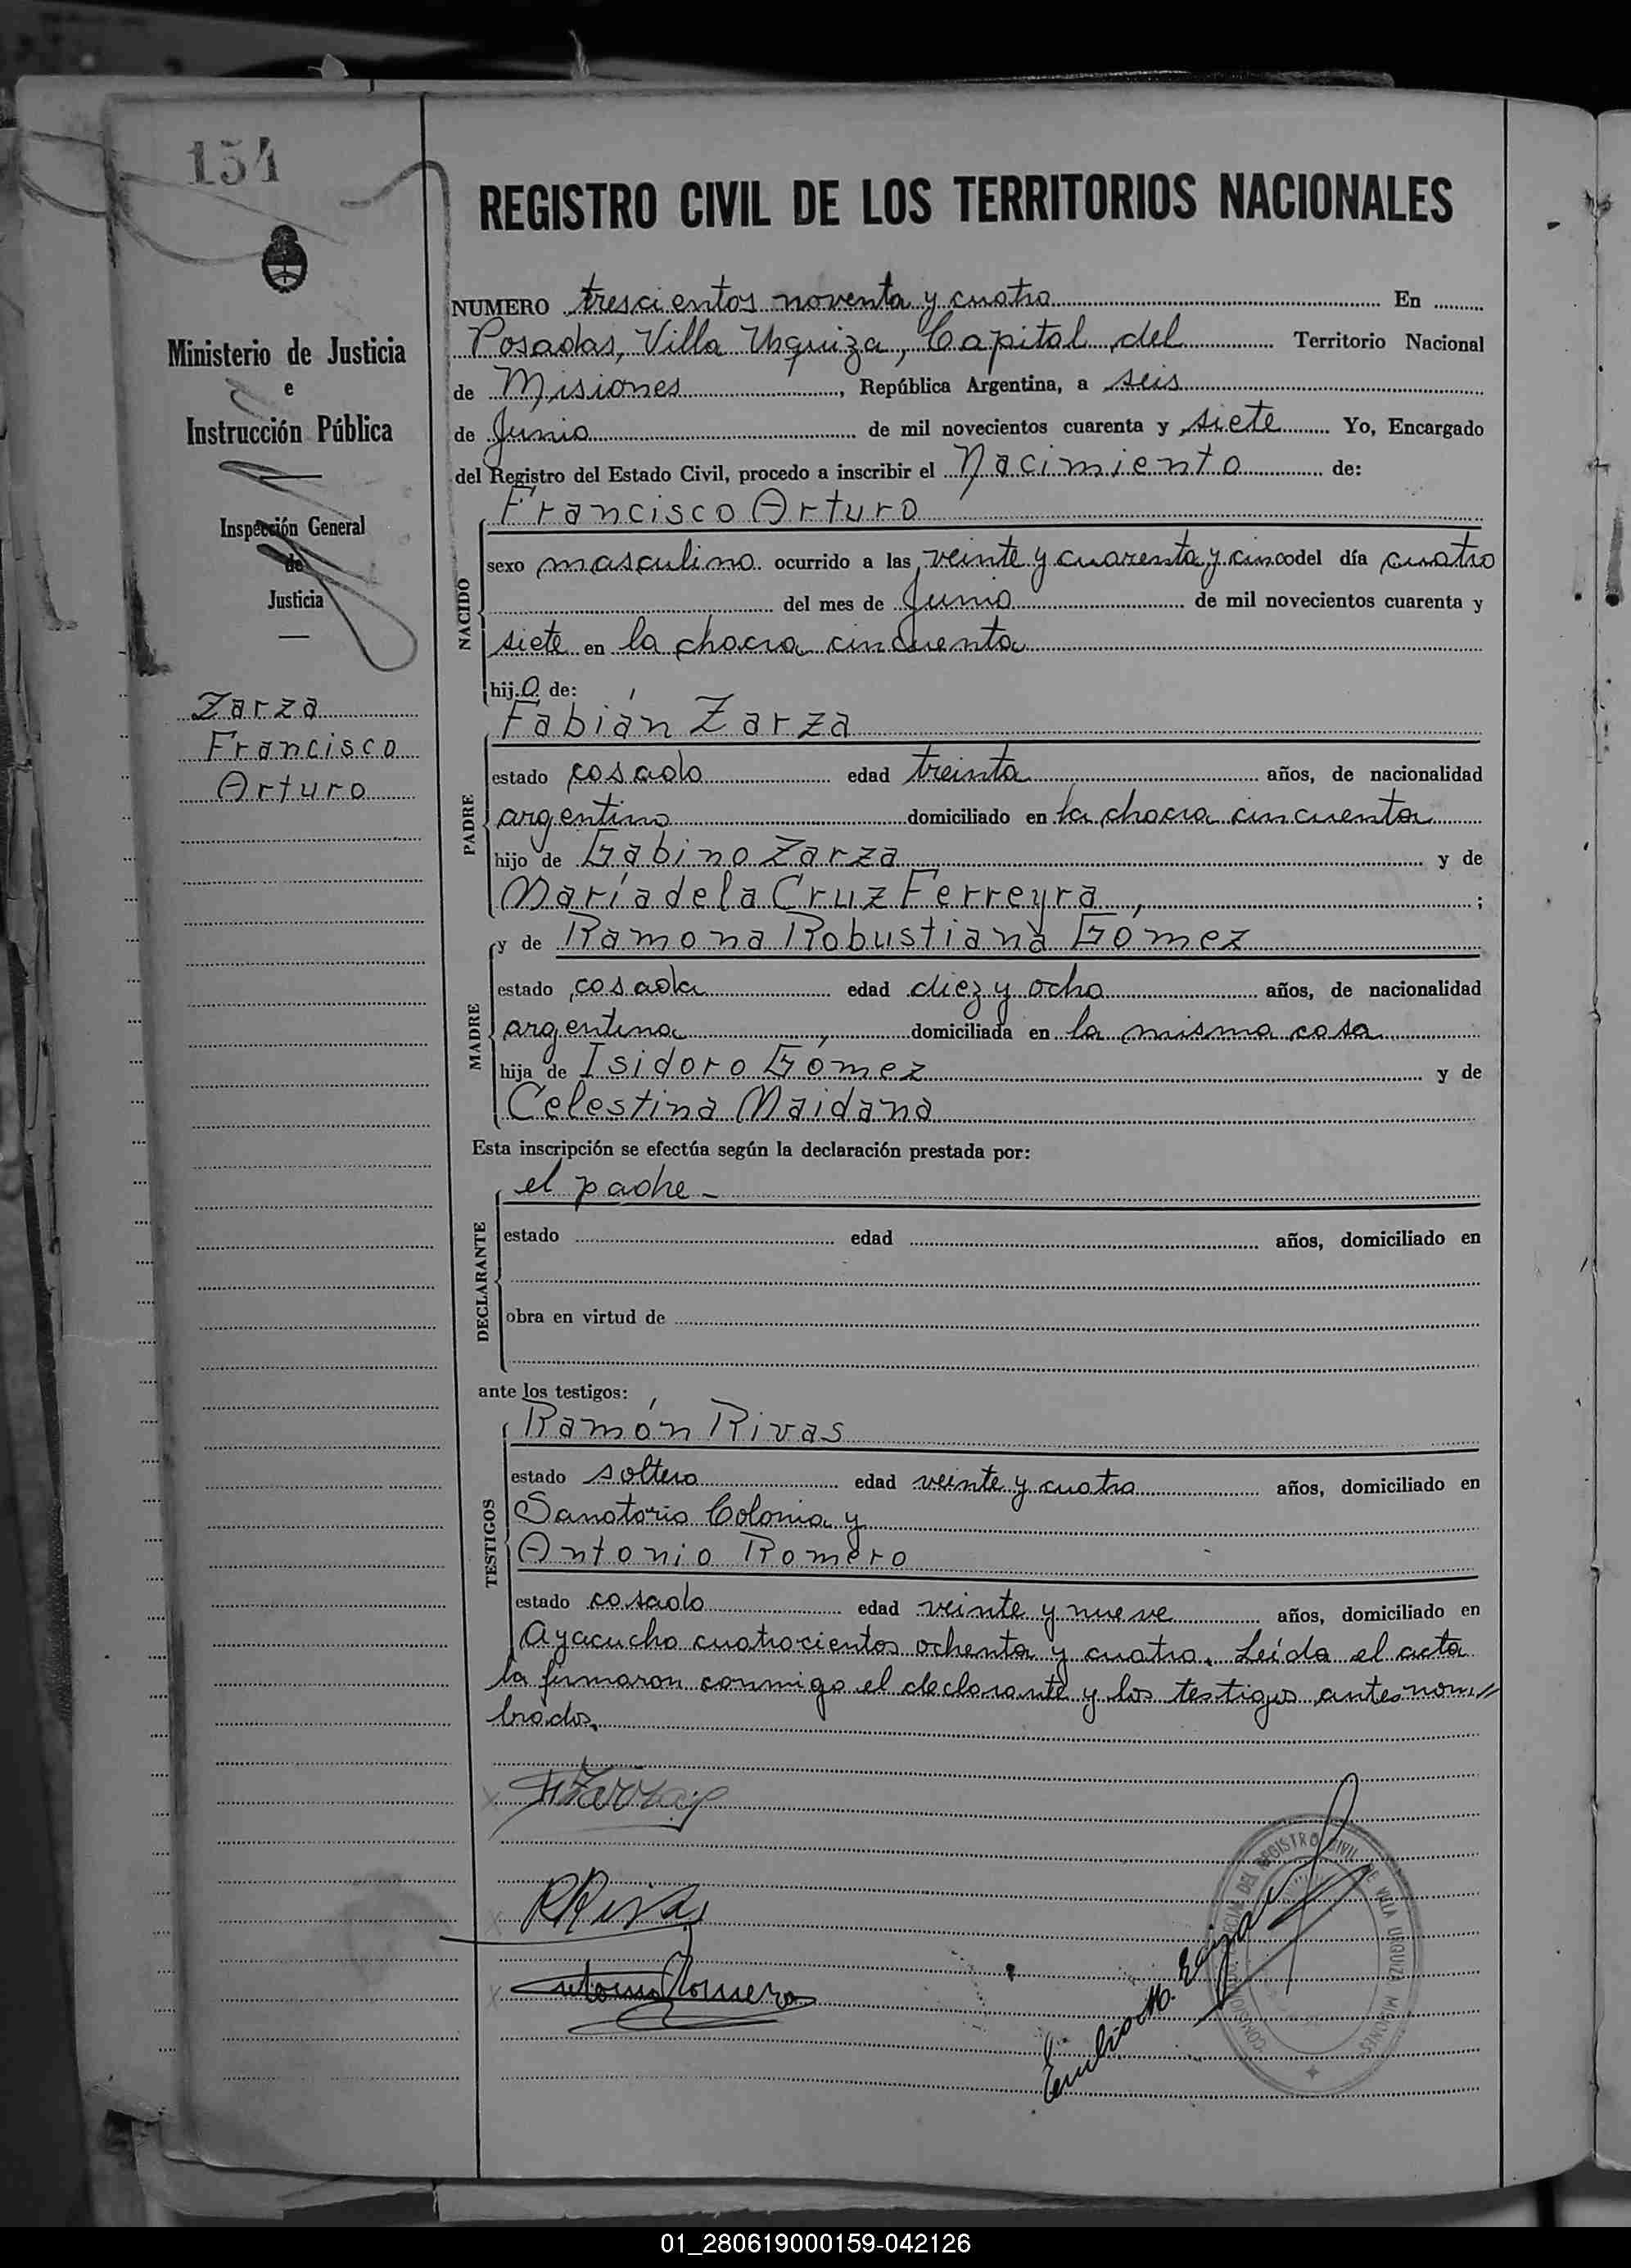 154
REGISTRO CIVIL DE LOS TERRITORIOS NACIONALES
Ministerio de Justicia
e
Instrucción Pública
Inspección General
de
Justicia
Zarza
Francisco
Arturo
NUMERO trescientos noventa y cuatro En
Posadas, Villa Urquiza, Capital del Territorio Nacional
de Misiones, República Argentina, a seis
de Junio de mil novecientos cuarenta y siete Yo, Encargado
del Registro del Estado Civil, procedo a inscribir el Nacimiento de:
Francisco Arturo
NACIDO
sexo masculino ocurrido a las veinte y cuarenta y cinco del día cuatro
del mes de Junio de mil novecientos cuarenta y
siete en la chacra cincuenta
hijo de:
Fabián Zarza
PADRE
estado casado edad treinta años, de nacionalidad
argentino domiciliado en la chacra cincuenta
hijo de Gabino Zarza y de
María de la Cruz Ferreyra ;
y de Ramona Robustiana Gómez
MADRE
estado casada edad diez y ocho años, de nacionalidad
argentina domiciliada en la misma casa
hija de Isidoro Gómez y de
Celestina Maidana
Esta inscripción se efectúa según la declaración prestada por:
el padre -
DECLARANTE
estado edad años, domiciliado en
obra en virtud de
ante los testigos:
Ramón Rivas
TESTIGOS
estado soltero edad veinte y cuatro años, domiciliado en
Sanatorio Colonia y
Antonio Romero
estado casado edad veinte y nueve años, domiciliado en
Ayacucho cuatrocientos ochenta y cuatro. Leída el acta
la firmaron conmigo el declarante y los testigos antes nom//
brados.
Zarza
RRivas
Antonio Romero
Emilio M.
DEL REGISTRO CIVIL DE VILLA URQUIZA MISIONES
01_280619000159-042126